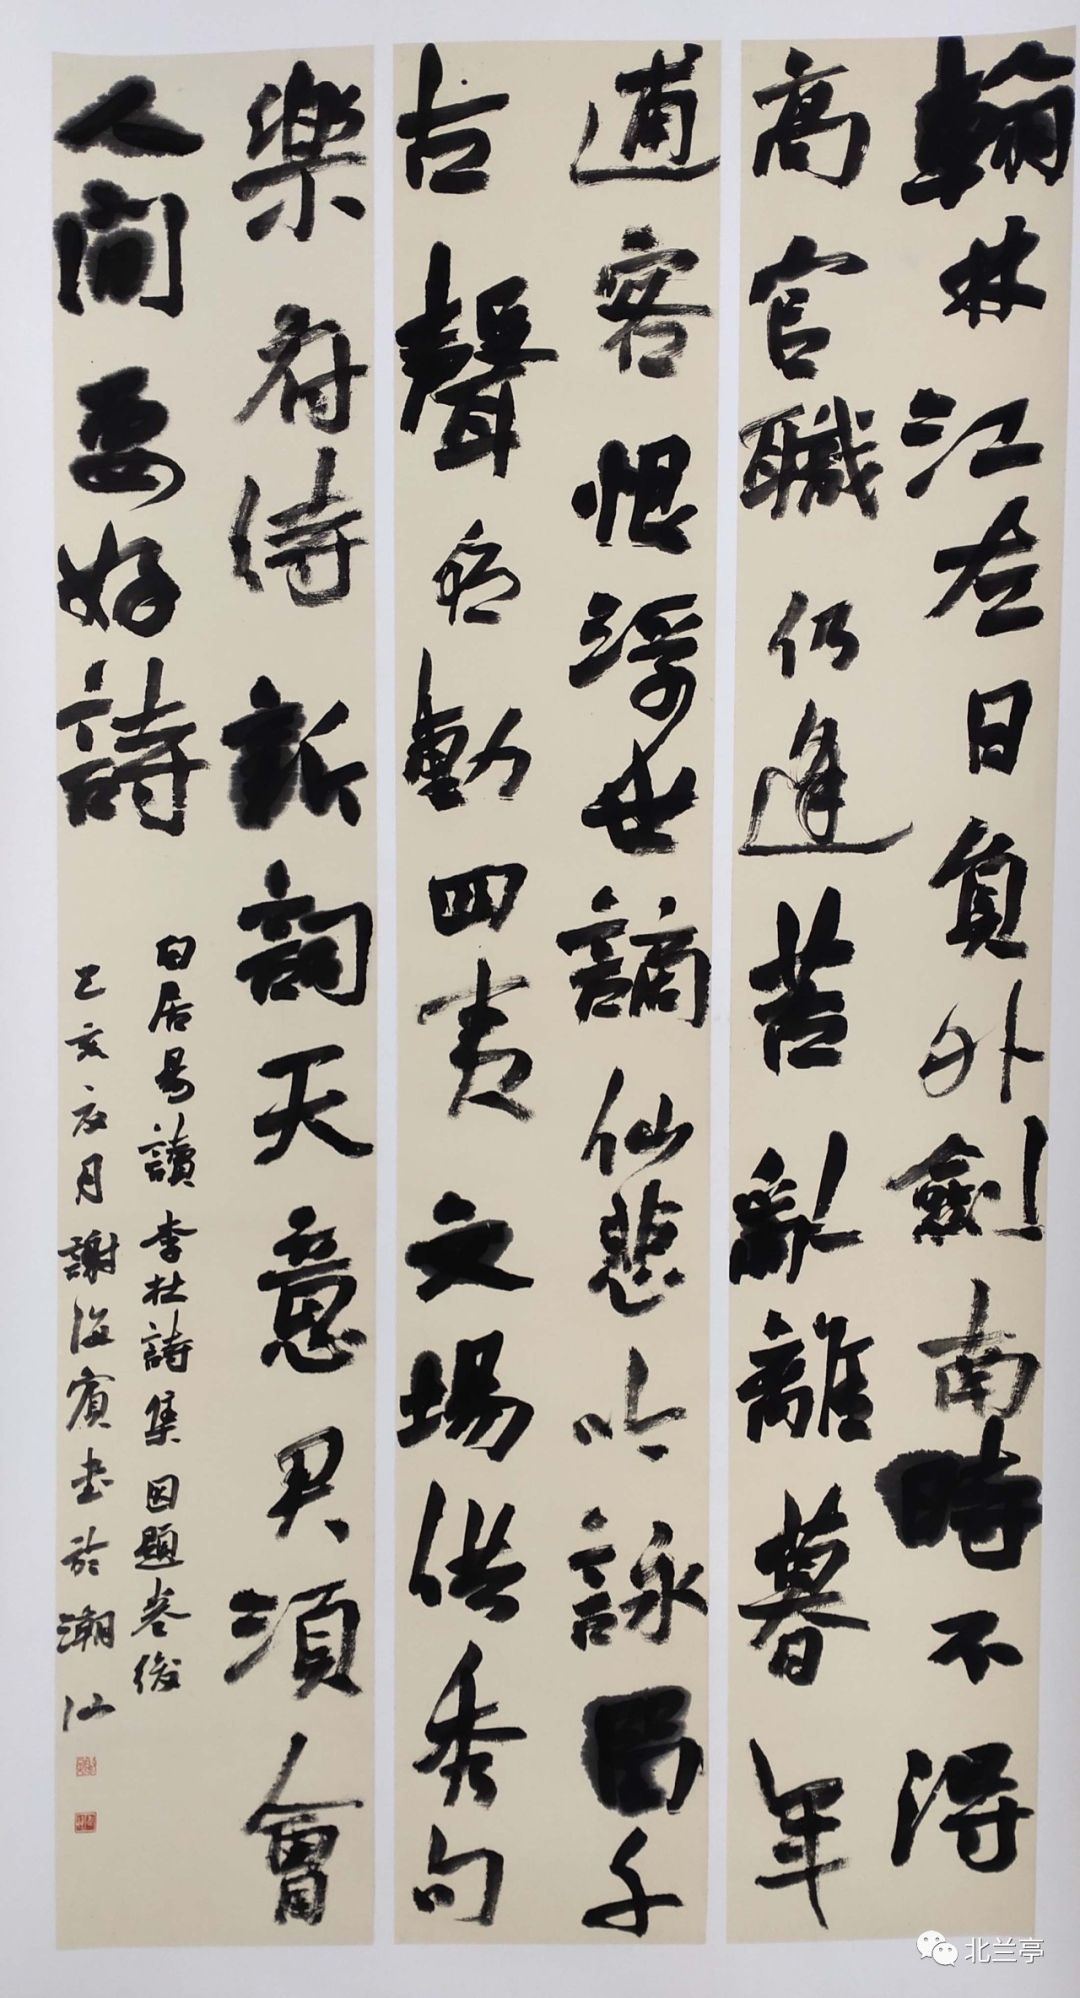 翰林江左日負外劍南時不得
高官職仍逢苦亂離暮年
逋客恨浮世謫仙悲吟詠留千
古聲名動四夷文場供秀句
樂府待新詞天意君須會
人間要好詩
白居易讀李杜詩集因題卷後
己亥夏月謝海賓書於潮汕
北兰亭